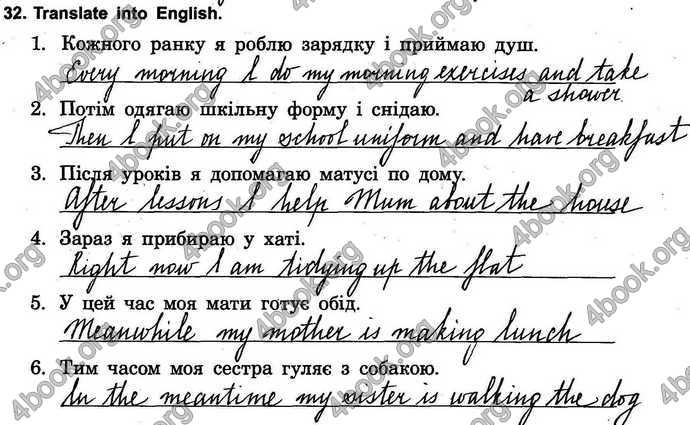 32. Translate into English.
1. Кожного ранку я роблю зарядку і приймаю душ.
Every morning I do my morning exercises and take
a shower
2. Потім одягаю шкільну форму і снідаю.
Then I put on my school uniform and have breakfast
3. Після уроків я допомагаю матусі по дому.
After lessons I help Mum about the house
4. Зараз я прибираю у хаті.
Right now I am tidying up the flat
5. У цей час моя мати готує обід.
Meanwhile my mother is making lunch
6. Тим часом моя сестра гуляє з собакою.
In the meantime my sister is walking the dog
4book.org